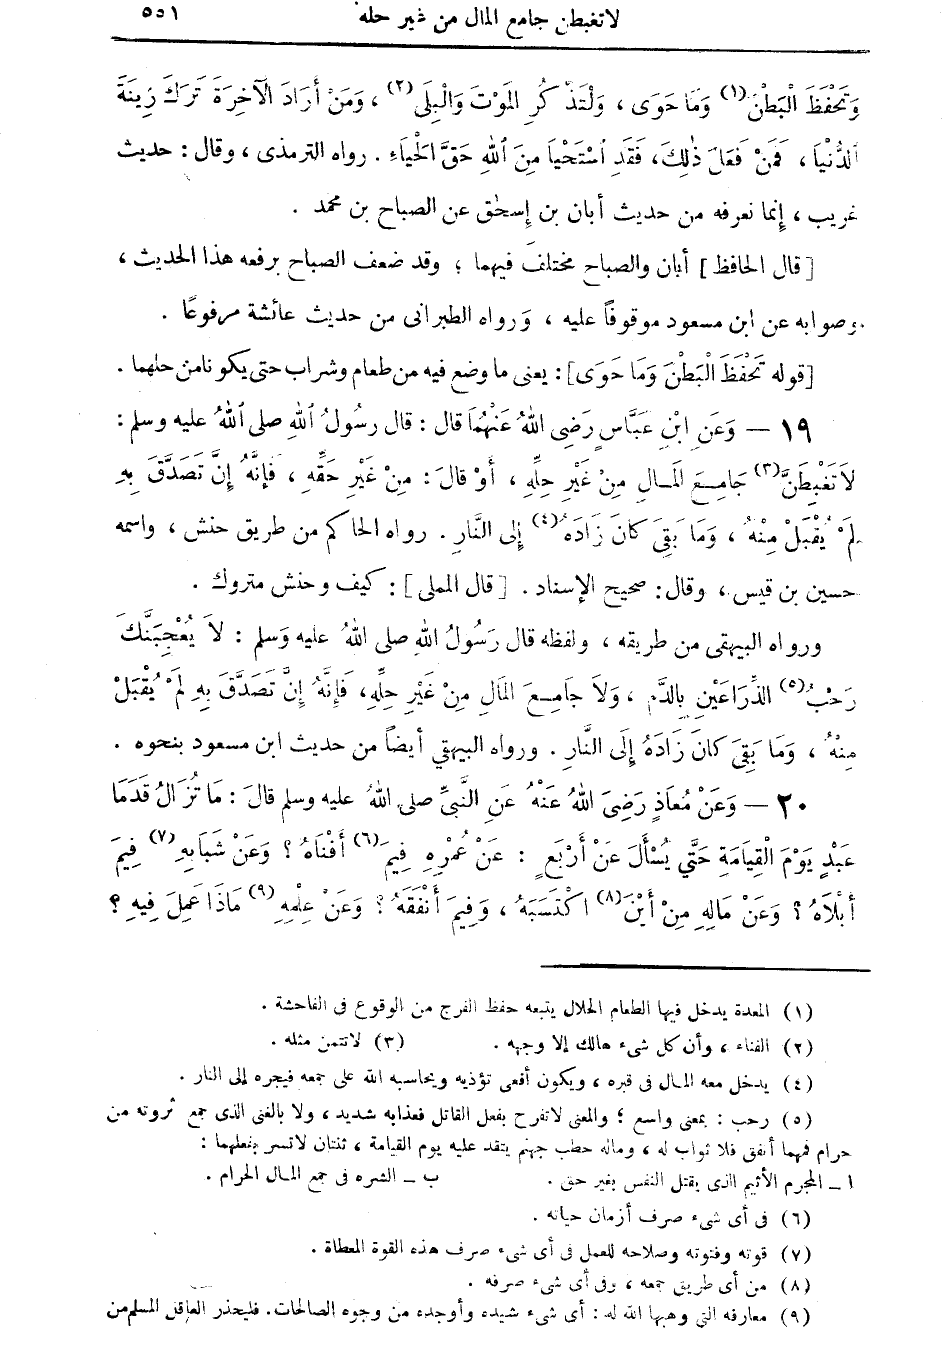 لا تغبطن جامع المال من غير حله ٥٥١
وَتَحْفَظَ الْبَطْنَ(١) وَمَا حَوَى ، وَلْتَذْكُرِ المَوْتَ وَالْبِلَى(٢) ، وَمَنْ أَرَادَ الآخِرَةَ تَرَكَ زِينَةَ
الدُّنْيَا ، فَمَنْ فَعَلَ ذٰلِكَ، فَقَدِ اسْتَحْيَا مِنَ اللهِ حَقَّ الْحَيَاءِ . رواه الترمذى ، وقال : حديث
غريب ، إنما نعرفه من حديث أبان بن إسحٰق عن الصباح بن محمد .
[قال الحافظ] أبان والصباح مختلف فيهما ؛ وقد ضعف الصباح برفعه هذا الحديث ،
وصوابه عن ابن مسعود موقوفاً عليه ، وَرواه الطبرانى من حديث عائشة مرفوعًا .
[قوله تَحْفَظَ الْبَطْنَ وَمَا حَوَى] : يعنى ما وضع فيه من طعام وشراب حتى يكونا من حلهما .
١٩ — وَعَنِ ابْنِ عَبَّاسٍ رَضِىَ اللهُ عَنْهُمَا قال : قال رسُولُ اللهِ صلى اللهُ عليه وسلم :
لاَ تَغْبِطَنَّ(٣) جَامِعَ المَالِ مِنْ غَيْرِ حِلِّهِ ، أَوْ قَالَ : مِنْ غَيْرِ حَقِّهِ ، فَإِنَّهُ إِنْ تَصَدَّقَ بِهِ
لَمْ يُقْبَلْ مِنْهُ ، وَمَا بَقِىَ كَانَ زَادَهُ(٤) إِلى النَّارِ . رواه الحاكم من طريق حنش ، واسمه
حسين بن قيس ، وقال : صحيح الإسناد . [قال المملى] : كيف وحنش متروك .
ورواه البيهقى من طريقه ، ولفظه قال رَسُولُ اللهِ صلى اللهُ عليه وَسلم : لاَ يُعْجِبَنَّكَ
رَحْبُ(٥) الذِّرَاعَيْنِ بِالدَّمِ ، وَلاَ جَامِعَ المَالِ مِنْ غَيْرِ حِلِّهِ، فَإِنَّهُ إِنْ تَصَدَّقَ بِهِ لَمْ يُقْبَلْ
مِنْهُ ، وَمَا بَقِىَ كَانَ زَادَهُ إِلَى النَّارِ . ورواه البيهقي أيضاً من حديث ابن مسعود بنحوه .
٢٠ — وَعَنْ مُعَاذٍ رَضِىَ اللهُ عَنْهُ عَنِ النَّبِىِّ صلى اللهُ عليه وسلم قالَ : مَا تُزَالُ قَدَمَا
عَبْدٍ يَوْمَ الْقِيَامَةِ حَتَّي يُسْأَلَ عَنْ أَرْبَعٍ : عَنْ عُمْرِهِ فِيمَ(٦) أَفْنَاهُ ؟ وَعَنْ شَبَابِهِ(٧) فِيمَ
أَبْلاَهُ ؟ وَعَنْ مَالِهِ مِنْ أَيْنَ(٨) اكْتَسَبَهُ ، وَفِيمَ أَنْفَقَهُ ؟ وَعَنْ عِلْمِهِ(٩) مَاذَا عَمِلَ فِيهِ ؟
(١) المعدة يدخل فيها الطعام الحلال يتبعه حفظ الفرج من الوقوع فى الفاحشة .
(٢) الفناء ، وأن كل شىء هالك إلا وجهه . (٣) لا تتمن مثله .
(٤) يدخل معه المال فى قبره ، ويكون أفعى تؤذيه ويحاسبه الله على جمعه فيجره إلى النار .
(٥) رحب : بمعنى واسع ؛ والمعنى لا تفرح بفعل القاتل فعذابه شديد ، ولا بالغنى الذى جمع ثروته من
حرام فمهما أنفق فلا ثواب له ، وماله حطب جهنم يتقد عليه يوم القيامة ، ثنتان لا تسر بفعلهما :
ا ــ المجرم الأثيم الذى يقتل النفس بغير حق . ب ــ الشره فى جمع المال الحرام .
(٦) فى أى شىء صرف أزمان حياته .
(٧) قوته وفتوته وصلاحه للعمل فى أى شىء صرف هذه القوة المعطاة .
(٨) من أى طريق جمعه ، وفى أى شىء صرفه .
(٩) معارفه التي وهبها الله له : أى شىء شيده وأوجده من وجوه الصالحات. فليحذر العاقل المسلم من